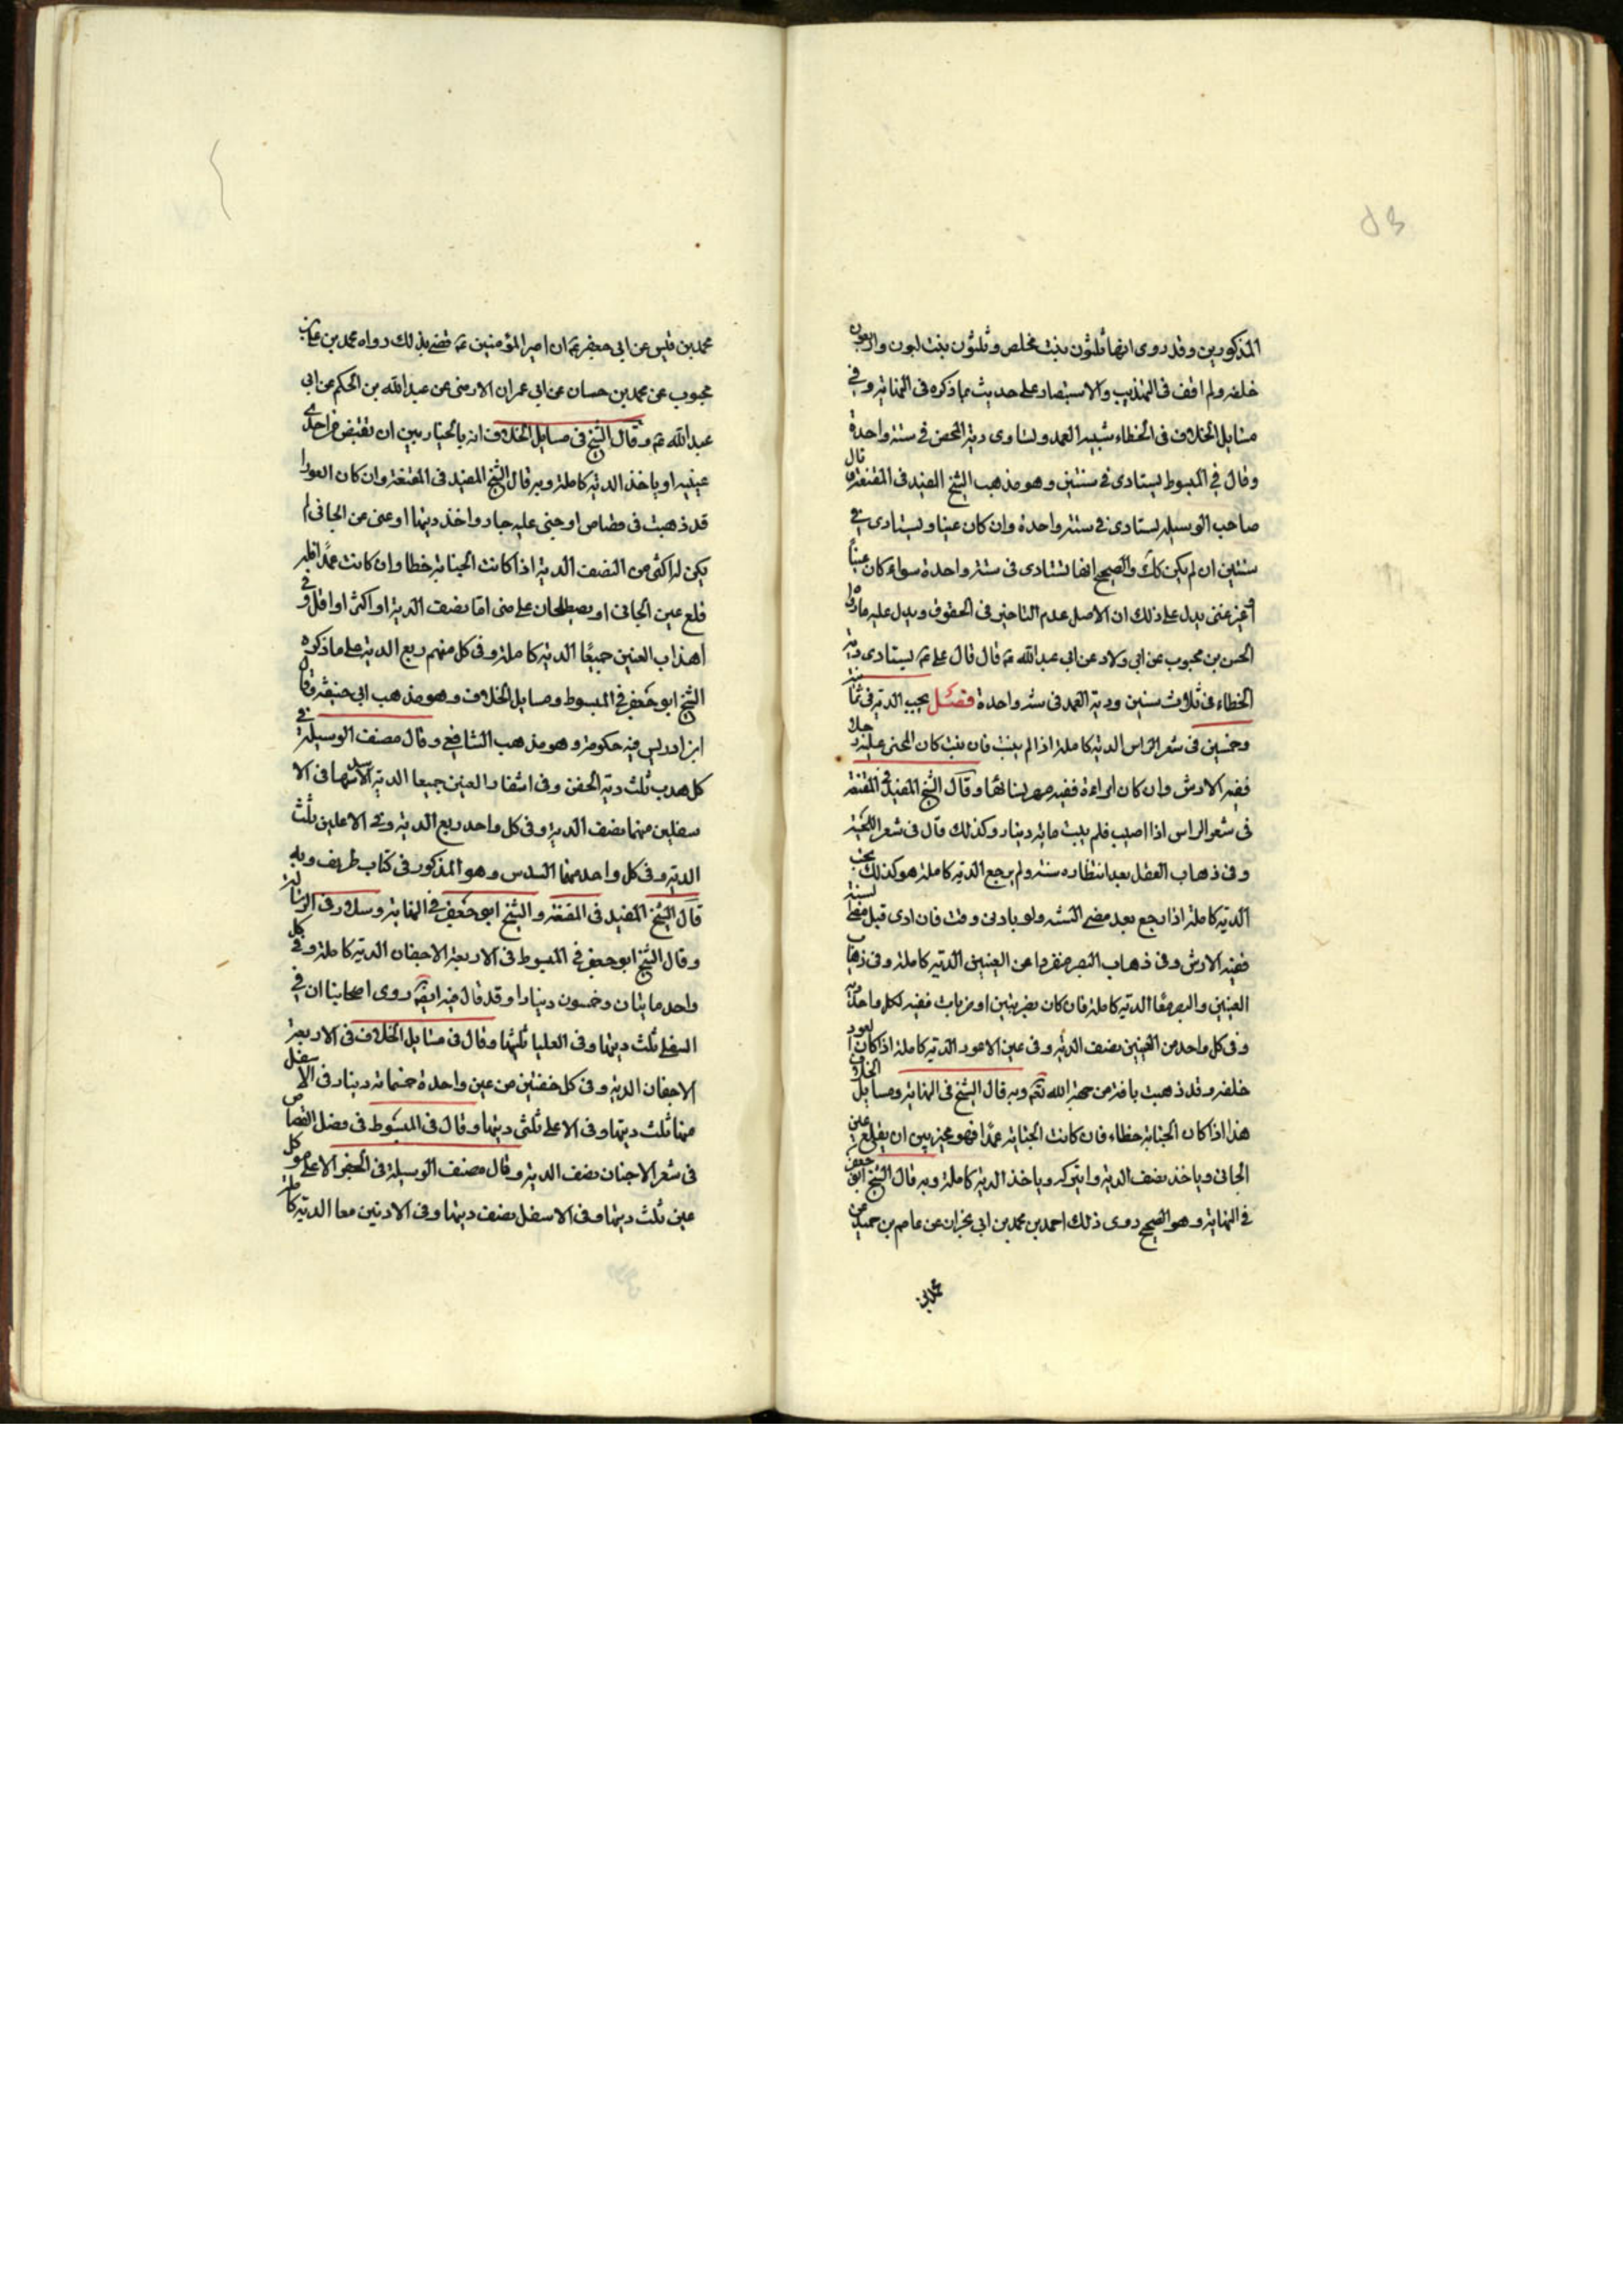 المذكورين وقد روى انها ثلثون بنت مخاض وثلثون بنت لبون واربعون
خلفه ولم اقف فى التهذيب والاستبصار على حديث بما ذكره فى النهاية وفي
مسايل الخلاف فى الخطاء شبيه العمد ويستادى دية المحض في سنة واحدة
وقال في المبسوط يستادى في سنتين وهو مذهب الشيخ المفيد فى المقنعة قال
صاحب الوسيله يستادى في سنة واحدة وان كان غنيا ويستادى في
سنتين ان لم يكن كك والصحيح انها تستادى فى سنة واحدة سواء كان غنياً
او غير غنى يدل على ذلك ان الاصل عدم التاخير فى الحقوق ويدل عليه ما رواه
الحسن بن محبوب عن ابى ولاد عن ابى عبد الله ع قال قال على ع يستادى دية
الخطاء فى ثلاث سنين ودية العمد فى سنة واحدة فصل يجب الدية فى ثمانية
وخمسين فى شعر الراس الدية كاملة اذا لم ينبت فان نبت كان المجنى عليه رجلا
ففيه الارش وان كان امراءة ففيه مهر نسائها وقال الشيخ المفيد فى المقنعة
فى شعر الراس اذا اصيب فلم ينبت ماية دينار وكذلك قال فى شعر اللحية
وفى ذهاب العقل بعد انتظاره سنة ولم يرجع الدية كاملة هو كذلك يجب
الدية كاملة اذا رجع بعد مضى السنة ولو بادنى وقت فان ادى قبل مضى السنة
ففيه الارش وفى ذهاب البصر منفردا عن العينين الدية كاملة وفى ذهاب
العينين والبصر معًا الدية كاملة فان كان بضربتين او ضربات ففيه لكل واحد دية
وفى كل واحد من العينين نصف الدية وفى عين الاعور الدية كاملة اذا كان العور
خلقه وقد ذهبت بافة من جهة الله تع وبه قال الشيخ فى النهاية ومسايل الخلاف
هذا اذا كان الجناية خطاء فان كانت الجناية عمدًا فهو مخير بين ان يقلع عين
الجانى وياخذ نصف الدية وان يتركه وياخذ الدية كاملة وبه قال الشيخ ابو جعفر
فى النهاية وهو الصحيح روى ذلك احمد بن محمد بن ابى نجران عن عاصم بن حميد عن
محمد بن
محمد بن قيس عن ابى جعفر ع ان امير المؤمنين ع قضى بذلك رواه محمد بن على بن
محبوب عن محمد بن حسان عن ابى عمران الارمنى عن عبد الله بن الحكم عن ابى
عبد الله ع وقال الشيخ فى مسايل الخلاف انه بالخيار بين ان يقتض من احدى
عينيه او ياخذ الدية كاملة وبه قال الشيخ المفيد فى المقنعة وان كان العورا
قد ذهبت فى قصاص او جنى عليه جار واخذ ديتها او عفى عن الجانى لم
يكن له اكثر من النصف الدية اذا كانت الجناية خطا وان كانت عمدًا فله
قلع عين الجانى او يصطلحان على شى اما نصف الدية او اكثر او اقل وفي
اهداب العينين جميعًا الدية كاملة وفى كل منهم ربع الدية على ما ذكره
الشيخ ابو جعفر في المبسوط ومسايل الخلاف وهو مذهب ابى حنيفة وقال
ابن ادريس فيه حكومة وهو مذهب الشافعى وقال مصنف الوسيلة في
كل هدب ثلث دية الجفن وفى اشفار العينين جميعا الدية فى الا
سفلين منها نصف الدية وفى كل واحد ربع الدية وفى الاعلين ثلث
الدية وفى كل واحد منها السدس وهو المذكور فى كتاب ظريف وبه
قال الشيخ المفيد فى المقنعة والشيخ ابو جعفر في النهاية وسلار فى الرسالة
وقال الشيخ ابو جعفر في المبسوط فى الاربعة الاجفان الدية كاملة وفي كل
واحد مايتان وخمسون دينارا وقد قال فيه ايضا روى اصحابنا ان في
السفلى ثلث ديتها وفى العليا ثلثيها وقال فى مسايل الخلاف فى الاربعة
الاجفان الدية وفى كل جفنتين من عين واحدة خمسماية دينار فى الاسفل
منها ثلث ديتها وفى الاعلى ثلثى ديتها وقال فى المبسوط فى فصل القصاص
فى شعر الاجفان نصف الدية وقال مصنف الوسيلة فى الجفن الاعلى من كل
عين ثلث ديتها وفى الاسفل نصف ديتها وفى الاذنين معا الدية كاملة